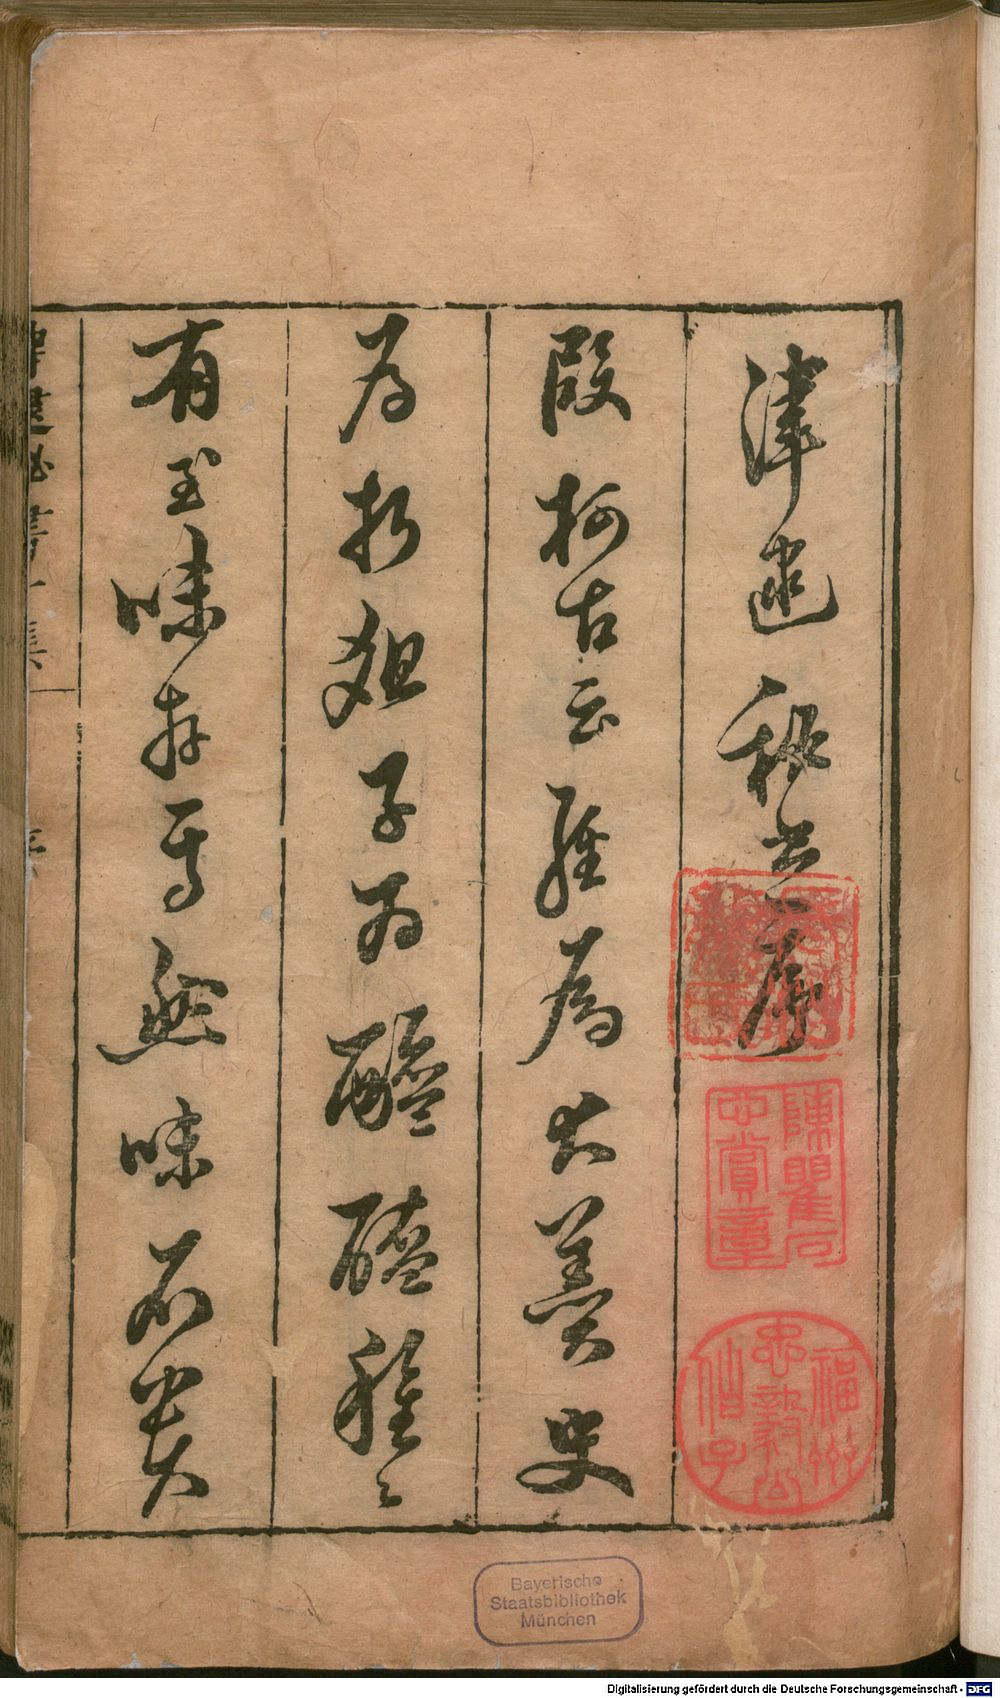 津逮秘書序
段柯古云經為大羹史
為折俎子為醯醢種〻
有至味存焉然味不貴
陳瞿石
心賞章
福州
忠毅公
Bayerische
Staatsbibliothek
München
Digitalisierung gefördert durch die Deutsche Forschungsgemeinschaft - DFG